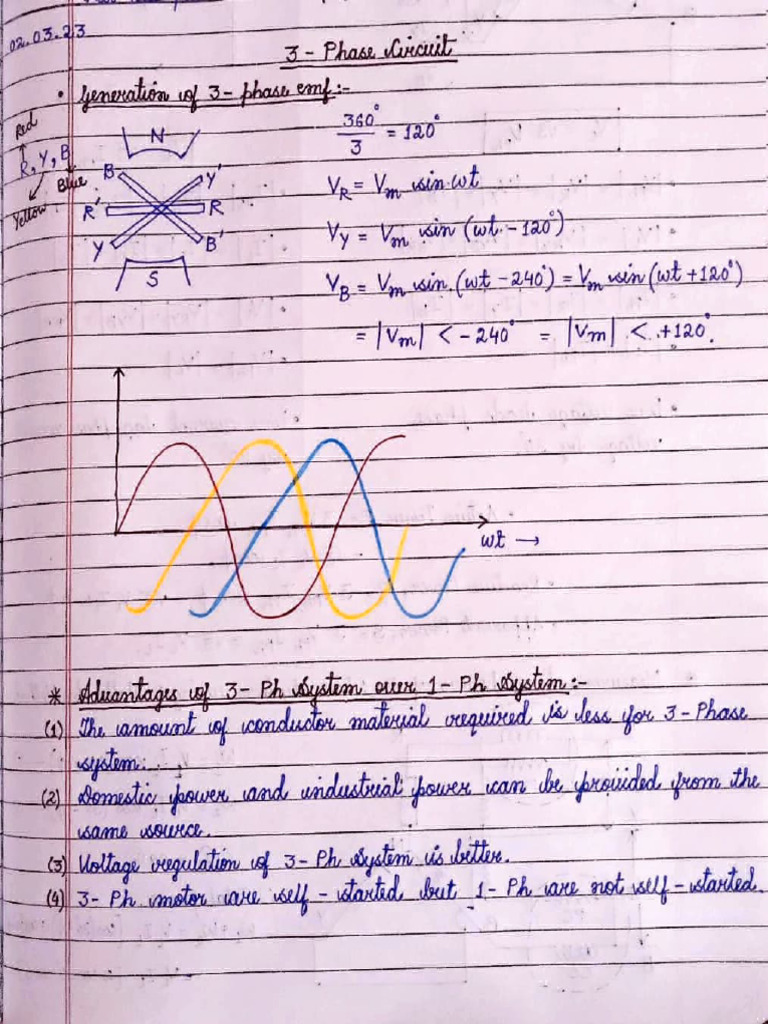 02.03.23
3 - Phase Circuit
• Generation of 3 - phase emf :-
Red
R, Y, B
Blue
Yellow
N
B Y'
R' R
Y B'
S
360°/3 = 120°
V_R = V_m sin wt
V_Y = V_m sin (wt - 120°)
V_B = V_m sin (wt - 240°) = V_m sin (wt + 120°)
= |V_m| < - 240° = |V_m| < +120°.
wt →
* Advantages of 3 - Ph System over 1 - Ph System :-
(1) The amount of conductor material required is less for 3 - Phase
system.
(2) Domestic power and industrial power can be provided from the
same source.
(3) Voltage regulation of 3 - Ph System is better.
(4) 3 - Ph motor are self - started but 1 - Ph are not self - started.